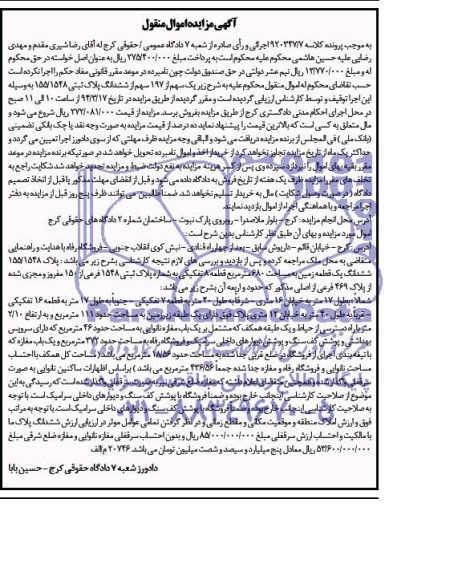 آگهی مزایده اموال منقول
به موجب پرونده کلاسه ۹۲۰۳۴۷/۷ اجرائی و رأی صادره از شعبه ۷ دادگاه عمومی / حقوقی کرج له آقای رضا شیری مقدم و مهدی
رضایی علیه حسین هاشمی محکوم علیه محکوم است به پرداخت مبلغ ۲۷۵/۴۰۰/۰۰۰ ریال به عنوان اصل خواسته در حق محکوم
له و مبلغ ۱۳/۷۷۰/۰۰۰ ریال نیم عشر دولتی در حق صندوق دولت چون نامبرده در موعد مقرر قانونی مفاد حکم را اجرا نکرده است
حسب تقاضای محکوم له اموال منقول محکوم علیه به شرح زیر یک سهم از ۱۹۷ سهم از ششدانگ پلاک ثبتی ۱۵۵/۱۵۴۸ به وسیله
این اجرا توقیف و توسط کارشناس ارزیابی گردیده است و مقرر گردیده از طریق مزایده در تاریخ ۹۴/۳/۱۷ از ساعت ۱۰ الی ۱۱ صبح
در محل اجرای احکام مدنی دادگستری کرج از طریق مزایده بفروش برسد. مزایده از قیمت ۲۷۲/۰۸۱/۰۰۰ ریال شروع می شود و
مال متعلق به کسی است که بالاترین قیمت را پیشنهاد نماید ده درصد از قیمت مزایده به صورت وجه نقد یا چک بانکی تضمینی
(بانک ملی) فی المجلس از برنده مزایده دریافت می شود و الباقی وجه مزایده ظرف مهلتی که از سوی دادورز اجرا تعیین می گردد و
حداکثر یک ماه از تاریخ مزایده تجاوز نخواهد کرد از خریدار اخذ و اموال نامبرده تحویل خواهد شد در صورتیکه برنده مزایده در موعد
مقرر بقیه بهای اموال را نپردازد سپرده وی پس از کسر هزینه مزایده به نفع دولت ضبط و مزایده تجدید خواهد شد شکایت راجع به
تخلف های مقررات مزایده ظرف یک هفته از تاریخ فروش به دادگاه داده می شود و قبل از انقضای مهلت مذکور یا قبل از اتخاذ تصمیم
دادگاه (در صورت وصول شکایت) مال به خریدار تسلیم نخواهد شد ضمنا طالبین می توانند ظرف پنج روز قبل از مزایده به دفتر
اجرا مراجعه و با هماهنگی اجرا از اموال بازدید نمایند.
آدرس محل انجام مزایده: کرج - بلوار ملاصدرا - روبروی پارک نبوت - ساختمان شماره ۲ دادگاه های حقوقی کرج
اموال مورد مزایده و بهای آن طبق نظر کارشناس بدین شرح است:
آدرس: کرج - خیابان قائم - داریوش سابق - بعد از چهارراه قنادی - نبش کوی انقلاب جنوبی - فروشگاه رفاه با هدایت و راهنمایی
متقاضی به محل ملک مراجعه کرده و پس از بازدید و بررسی های لازم نتیجه کارشناسی بشرح زیر می باشد: پلاک ۱۵۵/۱۵۴۸
ششدانگ یک قطعه زمین به مساحت ۶۸۰ مترمربع قطعه ۸ تفکیکی به شماره پلاک ثبتی ۱۵۴۸ فرعی از ۱۵۰ مفروز و مجزی شده
از پلاک ۴۶۹ فرعی از اصلی مذکور که حدود و اربعه آن بشرح زیر می باشد:
شمالا بطول ۱۷ متر به خیابان ۱۶ متری - شرقا به طول ۴۰ متر به قطعه ۷ تفکیکی - جنوباً به طول ۱۷ متر به قطعه ۱۶ تفکیکی
- غربا به طول ۴۰ متر به خیابان ۱۲ متری پلاک فوق دارای یک طبقه زیرزمین به مساحت حدود ۱۱۱ مترمربع و به ارتفاع ۲/۱۰
متر با راه دسترسی از حیاط و یک طبقه همکف که مشتمل بر یک باب مغازه نانوایی به مساحت حدود ۴۶ مترمربع که دارای سرویس
بهداشتی و پوشش کف سنگ و پوشش دیوارهای داخلی سرامیک و فروشگاه رفاه به مساحت حدود ۳۷۲ مترمربع و یک باب مغازه که
با تیغه بندی اجرای از فروشگاه در ضلع غربی جدا شده به مساحت حدود ۱۸/۵۶ مترمربع می باشد (مساحت کل همکف با احتساب
مساحت نانوایی و فروشگاه رفاه و مغازه جدا شده جمعا ۴۳۶/۵۶ مترمربع می باشد) براساس اظهارات ساکنین نانوایی به صورت
سرقفلی واگذار شده و همچنین متقاضی اعلام داشته که مغازه ضلع شرقی نیز به صورت سرقفلی واگذار شده است که رسیدگی به این
موضوع از صلاحیت کارشناسی اینجانب خارج بوده و ضمنا فروشگاه با پوشش کف سنگ و دیوارهای داخلی سرامیک است. با توجه
به صلاحیت کارشناسی اینجانب خارج بوده و ضمنا فروشگاه با پوشش کف سنگ و دیوارهای داخلی سرامیک است. با توجه به مراتب
فوق و ارزش املاک منطقه و موقعیت مکانی و مقطع زمانی و در نظر گرفتن تمامی عوامل موثر در ارزیابی ارزش ششدانگ پلاک ما
با مالکیت و احتساب ارزش سرقفلی مبلغ ۸۵/۰۰۰/۰۰۰/۰۰۰ ریال و بدون احتساب سرقفلی مغازه نانوایی و مغازه ضلع شرقی مبلغ
۵۳/۶۰۰/۰۰۰/۰۰۰ ریال معادل پنج میلیارد و سیصد و شصت میلیون تومان می باشد. ۲۰۷۴۶ م/الف
دادورز شعبه ۷ دادگاه حقوقی کرج - حسین بابا